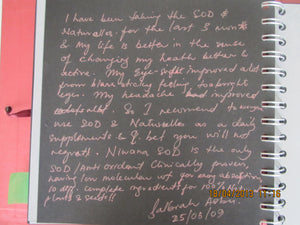 I have been taking the SOD &
Naturallee for the last 3 months
& My life is better in the sense
of changing my health better &
active. My Eye-sight improved a lot
from blank sticky feeling to bright
eyes. My headache had improved
So I recommend to
use SOD & Naturallee as a daily
supplements & I bet you will not
regret. Niwana SOD is the only
SOD/Anti oxidant clinically proven,
having low molecular wt for easy absorption
10 diff. complete ingredients for
plants & seeds!!
25/05/09